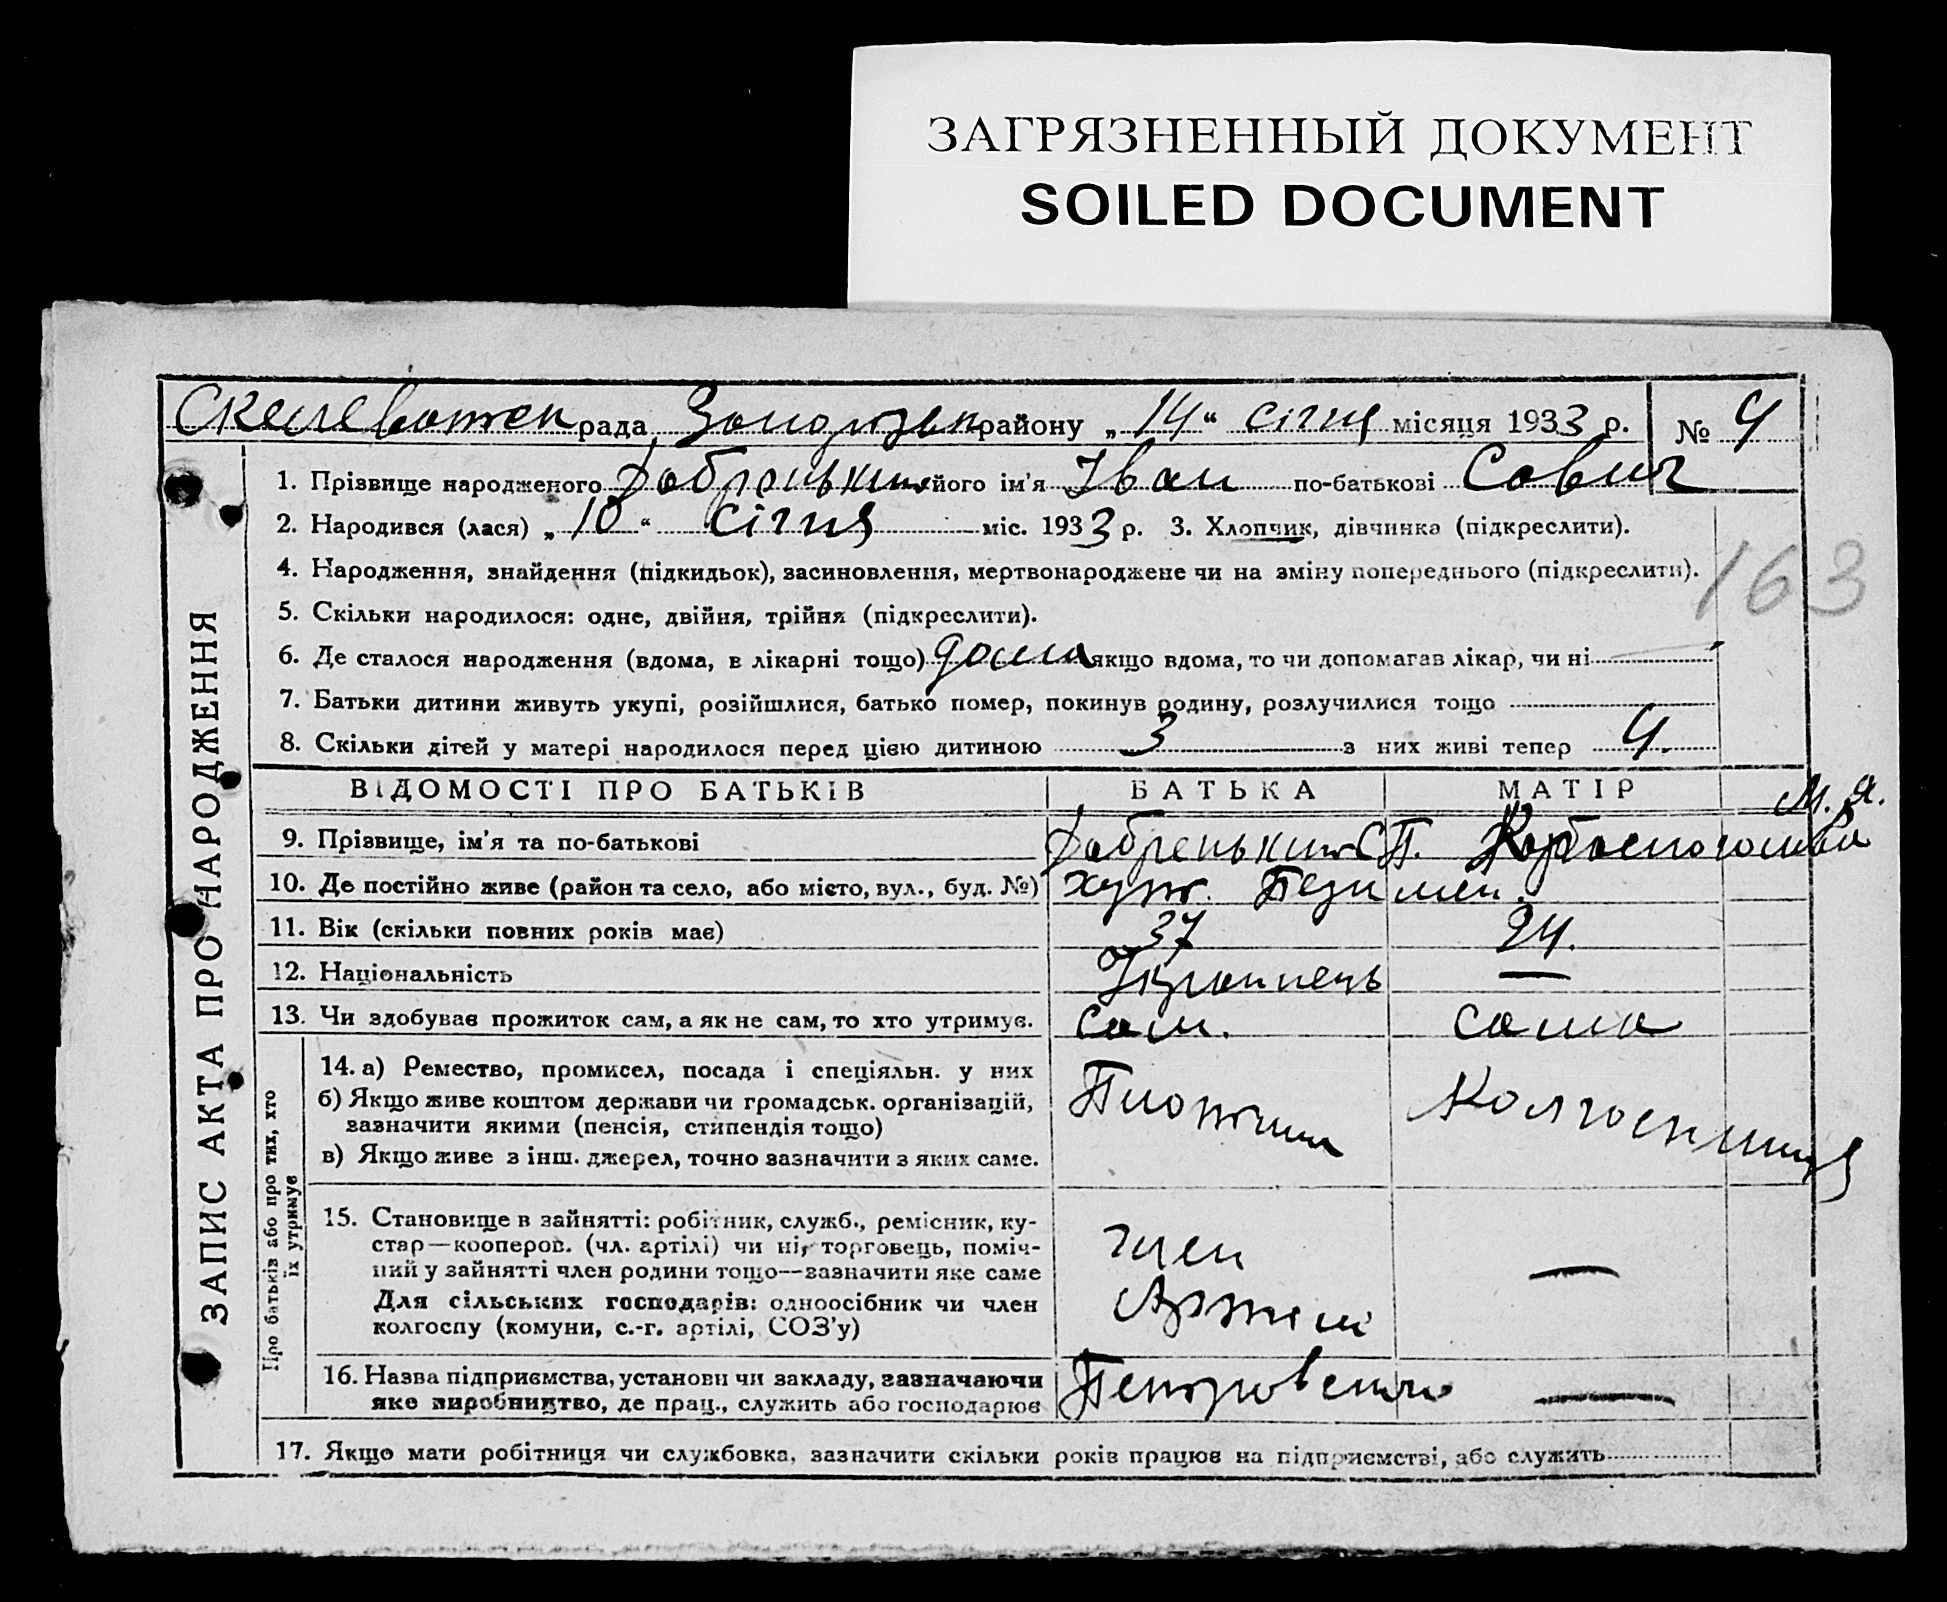 ЗАГРЯЗНЕННЫЙ ДОКУМЕНТ
SOILED DOCUMENT
рада, району „14“ січня місяця 1933 р. № 4
1. Прізвище народженого Добренький його ім'я Іван по-батькові Савич
2. Народився (лася) „10“ січня міс. 1933 р. 3. Хлопчик, дівчинка (підкреслити).
163
4. Народження, знайдення (підкидьок), засиновлення, мертвонароджене чи на зміну попереднього (підкреслити).
5. Скільки народилося: одне, двійня, трійня (підкреслити).
6. Де сталося народження (вдома, в лікарні тощо) дома якщо вдома, то чи допомагав лікар, чи ні
7. Батьки дитини живуть укупі, розійшлися, батько помер, покинув родину, розлучилися тощо
8. Скільки дітей у матері народилося перед цією дитиною 3 з них живі тепер 4.
ЗАПИС АКТА ПРО НАРОДЖЕННЯ
ВІДОМОСТІ ПРО БАТЬКІВ БАТЬКА МАТІР
М. Я.
9. Прізвище, ім'я та по-батькові Добренький С П.
10. Де постійно живе (район та село, або місто, вул., буд. №) хут.
11. Вік (скільки повних років має) 37 24.
12. Національність Українець —
13. Чи здобував прожиток сам, а як не сам, то хто утримує. Сам. сама
Про батьків або про тих, хто
їх утримує
14. а) Ремество, промисел, посада і спеціяльн. у них
б) Якщо живе коштом держави чи громадськ. організацій,
зазначити якими (пенсія, стипендія тощо)
в) Якщо живе з інш. джерел, точно зазначити з яких саме.
Колгоспниця
15. Становище в зайнятті: робітник, служб., ремісник, ку-
стар—коопером. (чл. артілі) чи ні, торговець, поміч-
ний у зайнятті член родини тощо—зазначити яке саме
Для сільських господарів: одноосібник чи член
колгоспу (комуни, с.-г. артілі, СОЗ'у)
член
Артілі
—
16. Назва підприємства, установи чи закладу, зазначаючи
яке виробництво, де прац., служить або господарює
—
17. Якщо мати робітниця чи службовка, зазначити скільки років працює на підприємстві, або служить